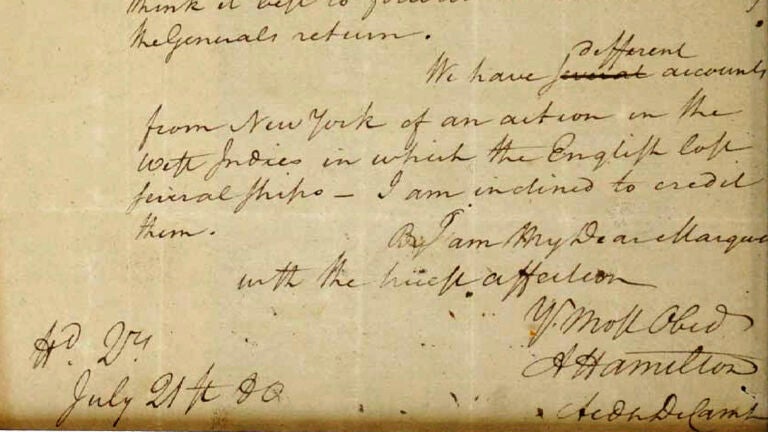 think it best to
the Generals return.
different
We have several accounts
from New York of an action in the
West Indies in which the English lost
several ships — I am inclined to credit
them.
I am My Dear Marquis
with the truest affection
Yr. Most Obed
A Hamilton
Aide De Camp
Hd. Qrs.
July 21st 80